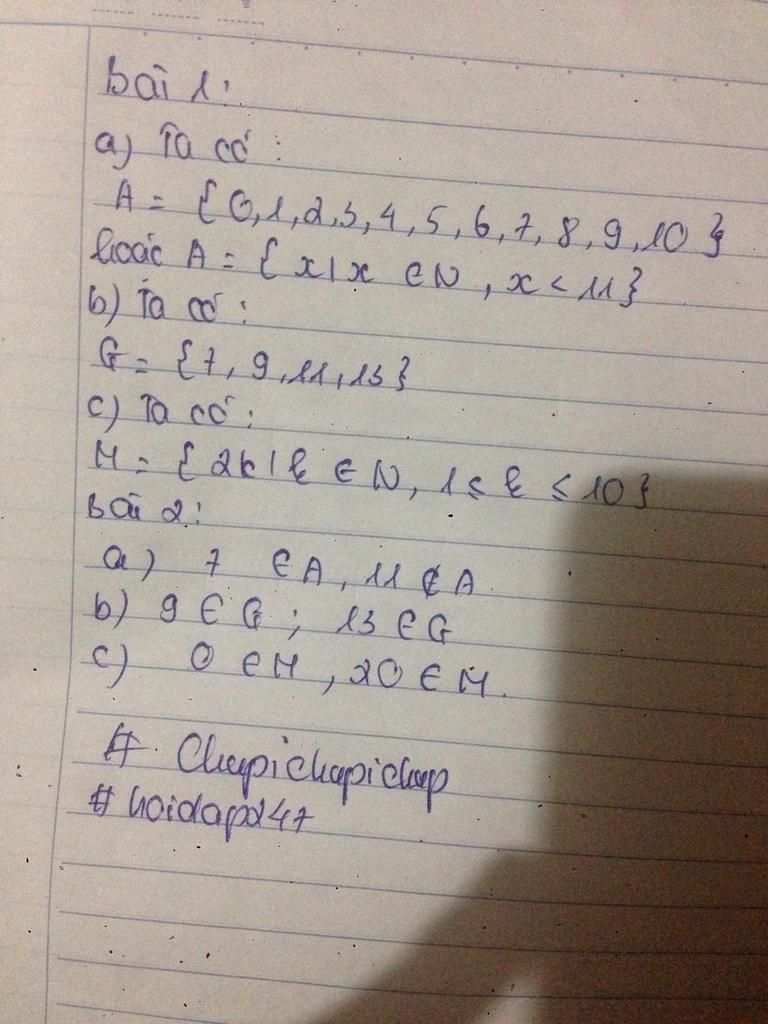 Bài 1:
a) Ta có:
A = {0,1,2,3,4,5,6,7,8,9,10}
hoặc A = {x|x ∈ N, x < 11}
b) Ta có:
G = {7, 9, 11, 13}
c) Ta có:
M = {2k|k ∈ N, 1 ≤ k ≤ 10}
Bài 2:
a) 7 ∈ A, 11 ∉ A
b) 9 ∈ G; 13 ∈ G
c) 0 ∈ M, 20 ∈ M.
# Chupichupichup
# hoidap247